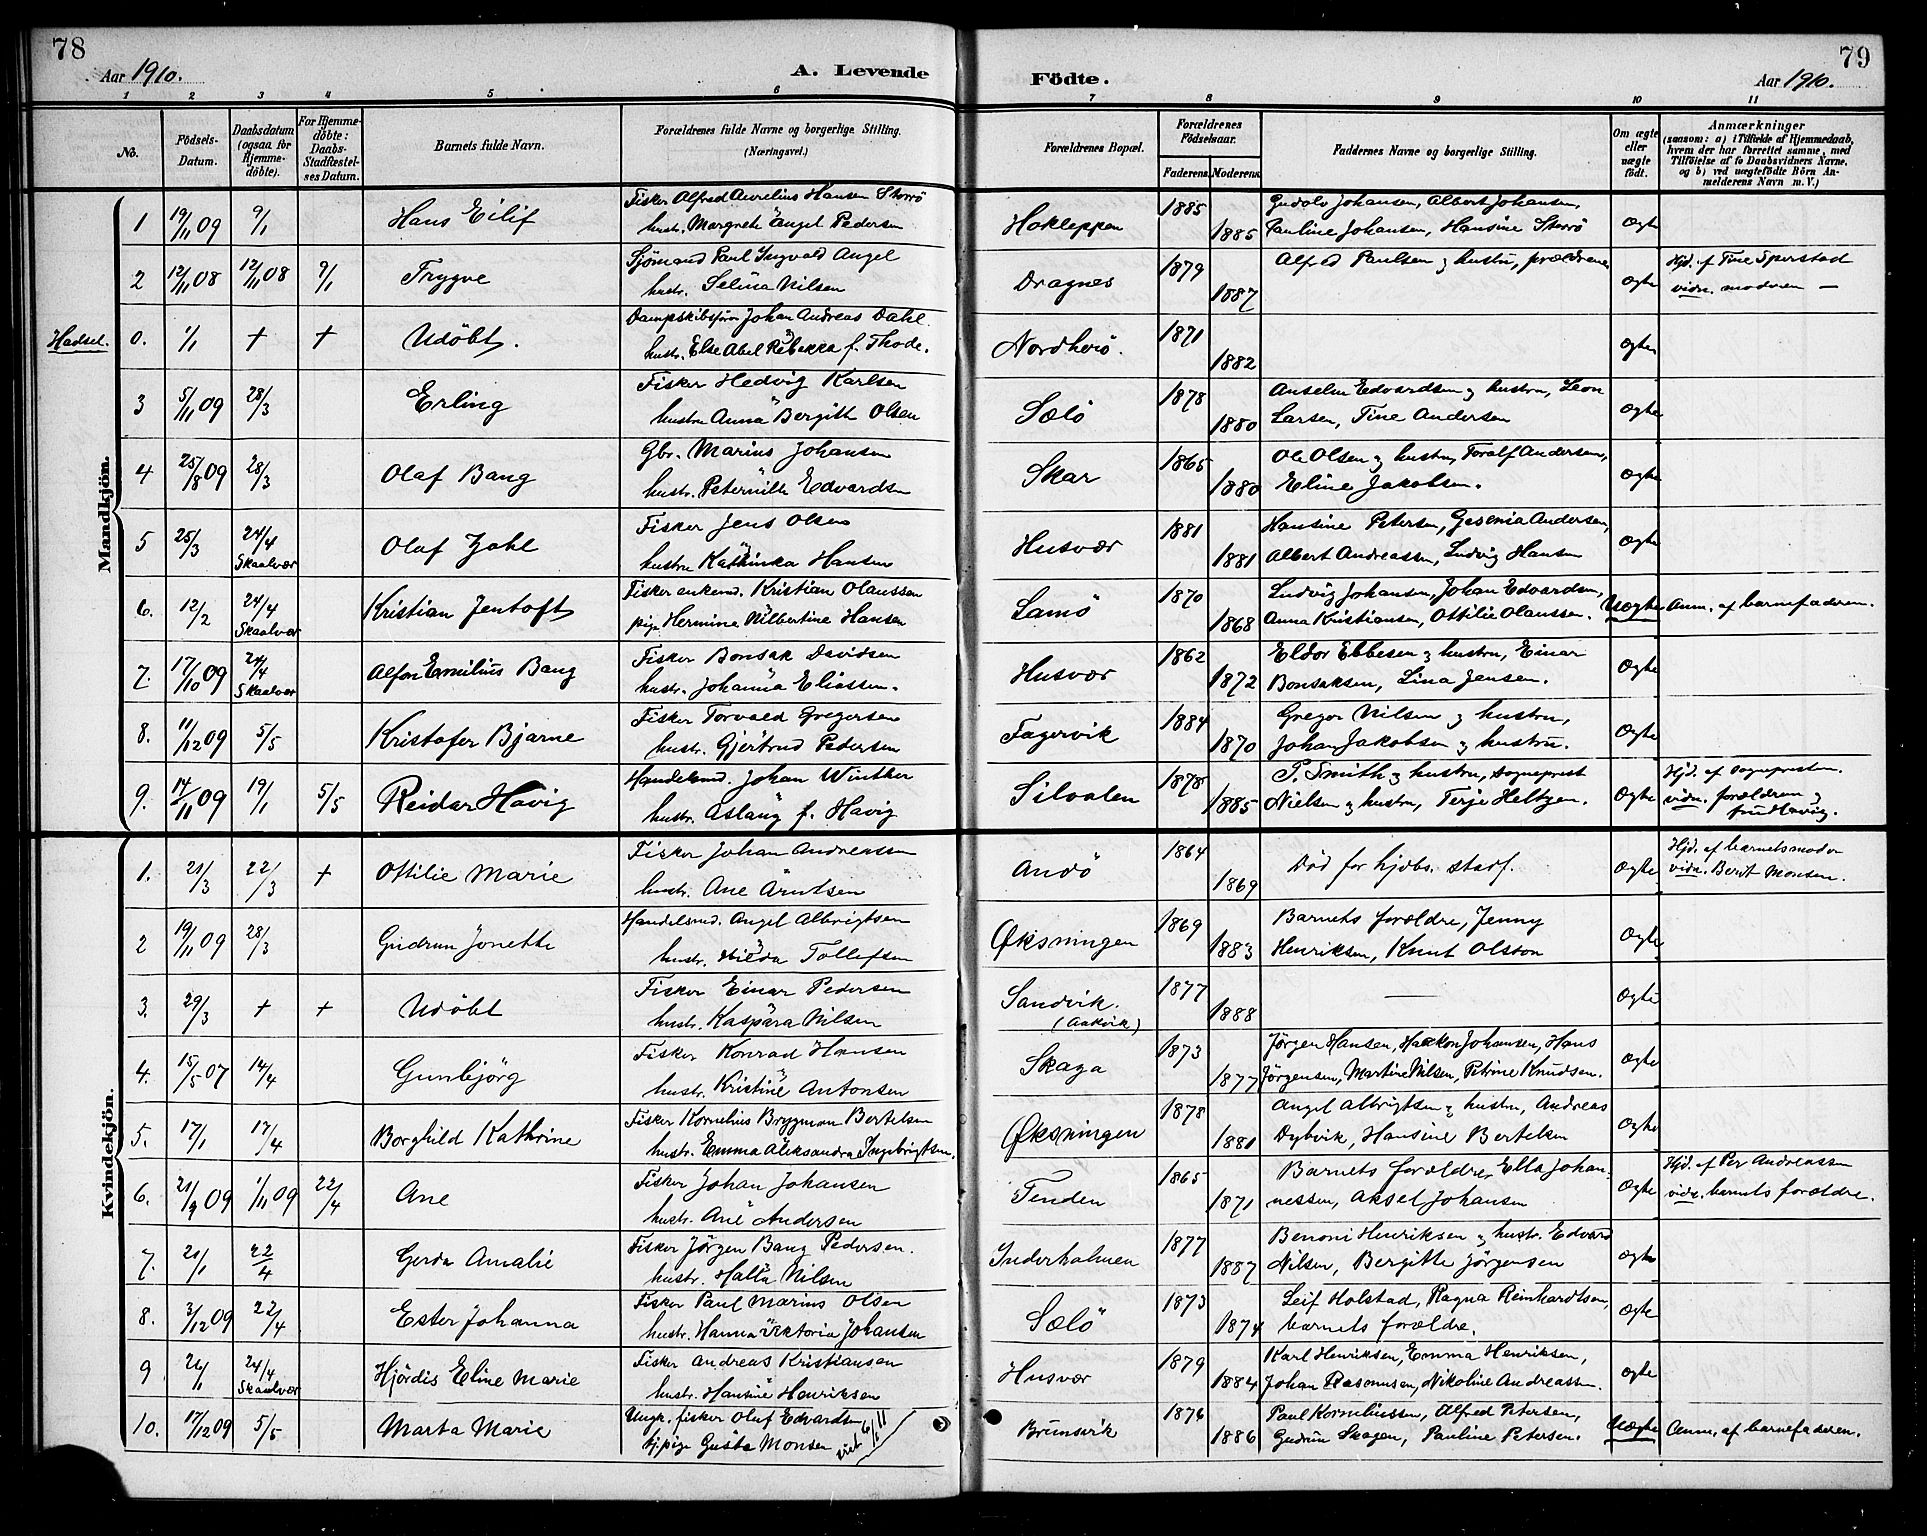 78
Aar 1910.
A. Levende
Födte.
79
Aar 1910.
1 2 3 4 5 6 7 8 9 10 11
No.
Födsels-Datum.
Daabsdatum (ogsaa for Hjemmedöbte).
For Hjemmedöbte: Daabs-Stadfæstelses Datum.
Barnets fulde Navn.
Forældrenes fulde Navne og borgerlige Stilling. (Næringsvei.)
Forældrenes Bopæl.
Forældrenes Födselsaar.
Faderens. Moderens.
Faddernes Navne og borgerlige Stilling.
Om ægte eller uægte födt.
Anmærkninger
(saasom: a) i Tilfælde af Hjemmedaab, hvem der har forrettet samme, med Tilföielse af to Daabsvidners Navne, og b) ved uægtefödte Börn Anmelderens Navn m. V.)
Mandkjön.
1 19/11 09 9/1 Hans Eilif Fisker Alfred Aurelius Hansen Storrö Hokleppen 1885 Gudolv Johansen, Albert Johansen, Ægte
hustr. Margrete Angel Pedersen 1885 Pauline Johansen, Hansine Storrö
2 12/11 08 12/11 08 9/1 Trygve Sjömand Paul Ingvald Angel Dragnes 1879 Alfred Paulsen & hustru, forældrene Ægte Hjd. af Tine Sperstad
hustr. Selina Nilsen 1887 vidn. moderen —
Hadsel. 0. 1/1 + + Udöbt. Dampskibsförer Johan Andreas Dahl Nordhvrö. 1871 Ægte
hustr. Else Abel Rebekka f. Thode. 1882
3 5/11 09 28/3 Erling Fisker Hedvig Karlsen Sælö 1878 Anselm Edvardsen & hustru, Leon Ægte
hustru Anna Bergitte Olsen 1880 Larsen, Tine Andersen
4 25/8 09 28/3 Olaf Bang Gbr. Marius Johansen Skar 1865 Ole Olsen & hustru, Toralf Andersen, Ægte
hustr. Peternille Edvardsen 1880 Eline Jakobsen.
5 25/3 24/4 Skaalvær Olaf Zahl Fisker Jens Olsen Husvær 1881 Hansine Petersen, Gesenia Andersen, Ægte
hustru Kathinka Hansen 1881 Albert Andreassen, Ludvig Hansen
6. 12/2 24/4 Skaalvær Kristian Jentoft Fisker enkemd. Kristian Olaussen Lamö 1870 Ludvig Johansen, Johan Edvardsen, Uægte Anm. af barnefaderen.
pige Hermine Nilbertine Hansen 1868 Anna Kristiansen, Ottilie Olaussen.
7. 17/10 09 24/4 Skaalvær Alfon Emilius Bang Fisker Bonsak Davidsen Husvær 1862 Eldor Ebbesen & hustru, Einar Ægte
hustr. Johanna Eliassen. 1872 Bonsaksen, Lina Jensen.
8. 11/12 09 5/5 Kristofer Bjarne Fisker Torvald Gregersen Fagervik 1884 Gregor Nilsen & hustru, Ægte
hustr. Gjertrud Pedersen 1870 Johan Jakobsen & hustru.
9. 14/11 09 19/1 5/5 Reidar Havig Handelsmd. Johan Winther Silvalen 1878 P. Smith & hustru, sogneprest Ægte Hjd. af sognepresten.
hustr. Aslaug f. Havig 1885 Nielsen & hustru, Terje Heltzen. vidn. forældren & fru Havig.
Kvindekjön.
1. 21/3 22/3 + Ottilie Marie Fisker Johan Andreassen Andö 1864 Död for hjdbs. stadf. Ægte Hjd. af barnets moder
hustr. Ane Arntsen 1869 vidn. Berit Monsen.
2 19/11 09 28/3 Gudrun Jonette Handelsmd. Angel Albrigtsen Øksningen 1869 Barnets forældre, Jenny Ægte
hustr. Hilda Tollefsen 1883 Henriksen, Knut Olston
3. 29/3 + + Udöbt Fisker Einar Pedersen Sandvik. (Aakvik) 1877 — Ægte
hustr. Kaspara Nilsen 1888
4. 15/5 07 14/4 Gunbjörg Fisker Konrad Hansen Skaga 1873 Jörgen Hansen, Haakon Johansen, Hans Ægte
hustr. Kristine Antonsen 1877 Jörgensen, Martine Nilsen, Petrine Knudsen.
5. 17/1 17/4 Borghild Kathrine Fisker Kornelius Brygman Bertelsen Øksningen 1878 Angel Albrigtsen & hustru, Andreas Ægte
hustr. Emma Aleksandra Ingebrigtsen. 1881 Dybvik, Hansine Bertelsen
6. 21/9 09 1/11 09 22/4 Ane Fisker Johan Johansen Tenden 1865 Barnets forældre, Ella Johan- Ægte Hjd. af Per Andreassen
hustr. Ane Andersen 1871 nessen, Aksel Johansen vidn. barnets forældre.
7. 21/1 22/4 Gerda Amalie Fisker Jörgen Bang Pedersen. Inderholmen 1877 Benoni Henriksen & hustr. Edvard Ægte
hustr. Halla Nilsen 1887 Nilsen, Bergitte Jörgensen
8. 3/12 09 22/4 Ester Johanna Fisker Paul Marius Olsen Sælö 1873 Leif Holstad, Ragna Reinhardtsen, Ægte
hustr. Hanna Viktoria Johansen 1874 barnets forældre.
9 21/1 24/4 Skaalvær Hjördis Eline Marie Fisker Andreas Kristiansen Husvær 1879 Karl Henriksen, Emma Henriksen, Ægte
hustr. Hansine Henriksen 1884 Johan Rasmussen, Nikoline Andreassen.
10. 17/12 09 5/5 Marta Marie Ungk. fisker Oluf Edvardsen Brunsvik 1876 Paul Korneliussen, Alfred Petersen, Uægte Anm. af barnefaderen.
tj. pige Gusta Monsen viet 6/11 1886 Gudrun Skagen, Pauline Petersen.